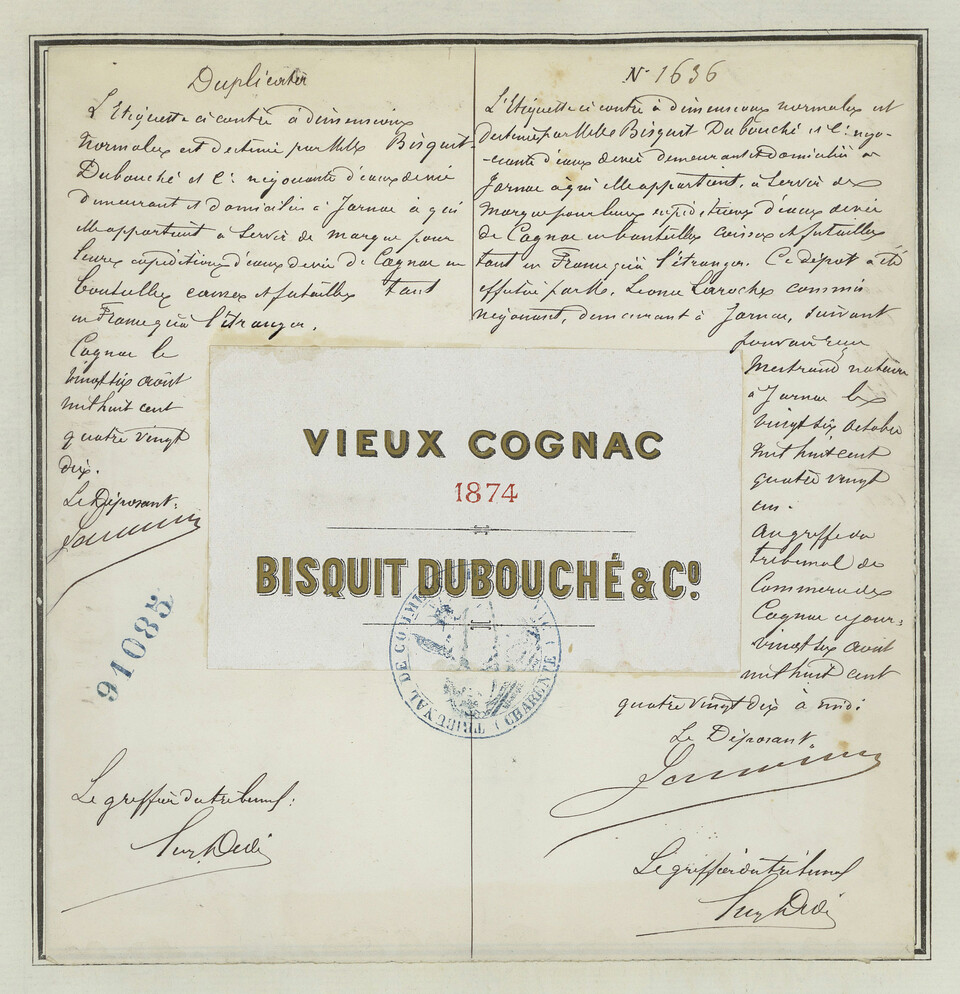 Duplicata
L'Etiquette ci contre à dimensions
normales est destinée par MM Bisquit
Dubouché et Cie négociants d'eaux de vie
demeurant et domiciliés à Jarnac à qui
elle appartient à servir de marque pour
leurs expéditions d'eaux de vie de Cognac en
bouteilles caisses et futailles tant
en France qu'à l'étranger.
Cognac le
vingt six août
mil huit cent
quatre vingt
dix.
Le Déposant:
94085
Le greffier du tribunal:
No 1636
L'Etiquette ci contre à dimensions normales est
destinée par MM Bisquit Dubouché et Cie négo-
-ciants d'eaux de vie demeurant et domiciliés à
Jarnac à qui elle appartient, à servir de
marque pour leurs expéditions d'eaux de vie
de Cognac en bouteilles caisses et futailles
tant en France qu'à l'étranger. Ce dépôt a été
effectué par M. Léonce Laroche commis
négociant, demeurant à Jarnac, suivant
pouvoir reçu
Mestraud notaire
à Jarnac le
vingt six octobre
mil huit cent
quatre vingt
un.
Au greffe du
tribunal de
Commerce de
Cognac ce jour:
vingt six août
mil huit cent
quatre vingt dix à midi
Le Déposant
Le greffier du tribunal
VIEUX COGNAC
1874
BISQUIT DUBOUCHÉ & Co.
TRIBUNAL DE COMMERCE
(CHARENTE)